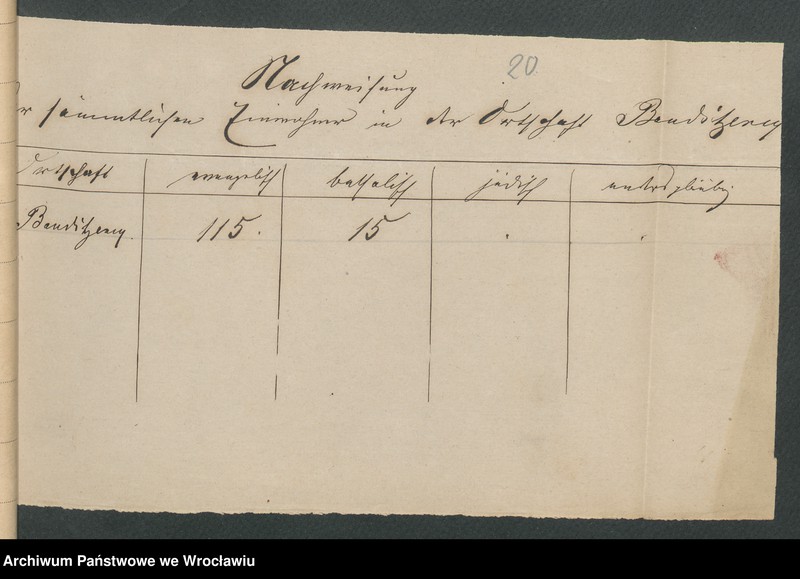 20.
Nachweisung
der sämmtlichen Einwohner in der Ortschaft
Ortschaft evangelisch katholisch jüdisch andersgläubig
115. 15 . .
Archiwum Państwowe we Wrocławiu